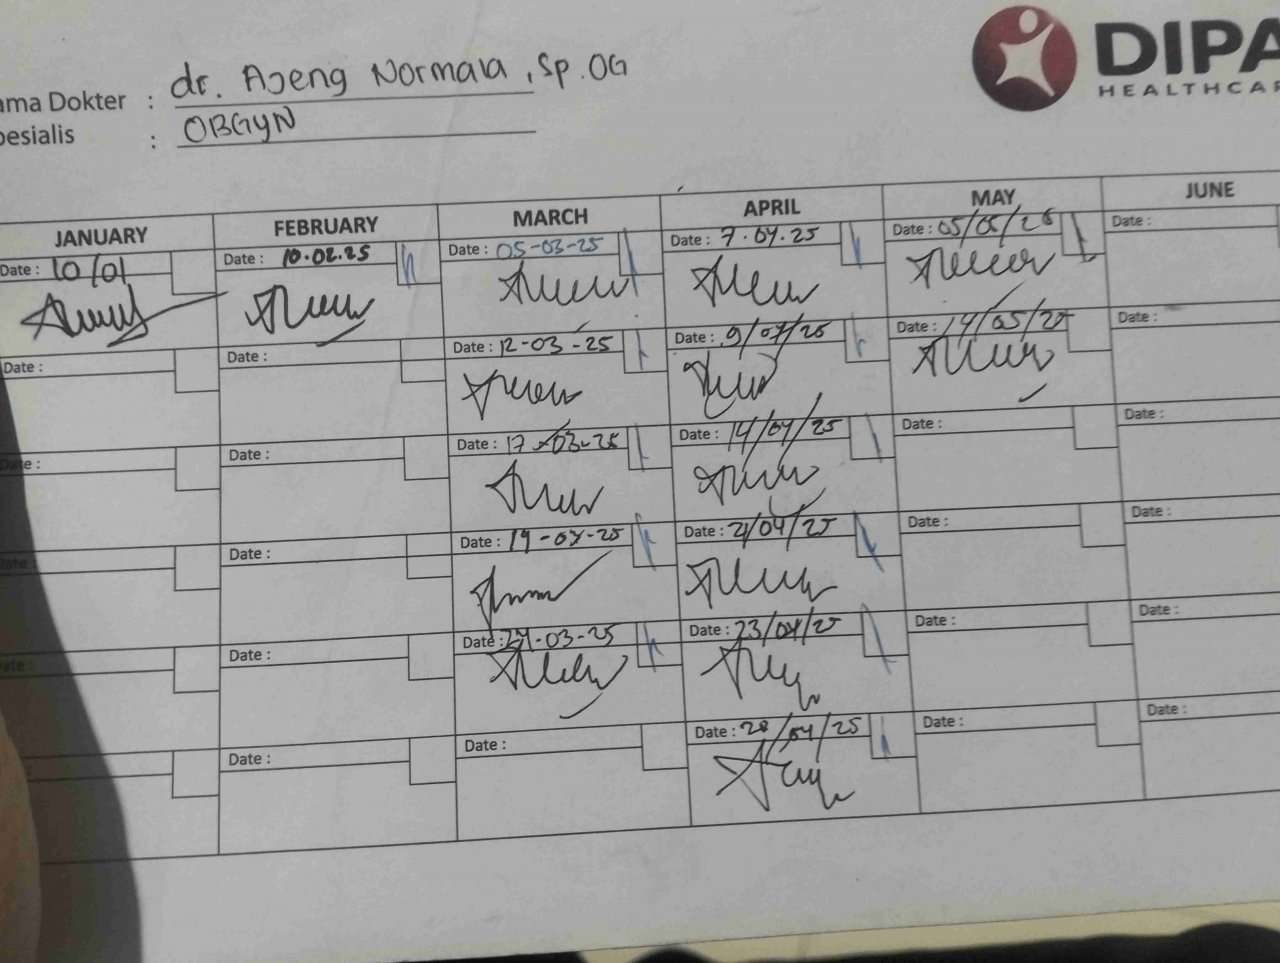 DIPA
HEALTHCAR
ama Dokter : dr. Ajeng Normala, Sp.OG
pesialis : OBGYN
JANUARY FEBRUARY MARCH APRIL MAY JUNE
Date : 10/01 Date : 10.02.25 Date : 05-03-25 Date : 7.04.25 Date : 05/05/25 Date :
Date : Date : Date : 12-03-25 Date : 9/04/25 Date : 14/05/25 Date :
Date : Date : Date : 17-03-25 Date : 14/04/25 Date : Date :
Date : Date : Date : 19-03-25 Date : 21/04/25 Date : Date :
Date : Date : Date : 24-03-25 Date : 23/04/25 Date : Date :
Date : Date : Date : 28/04/25 Date : Date :